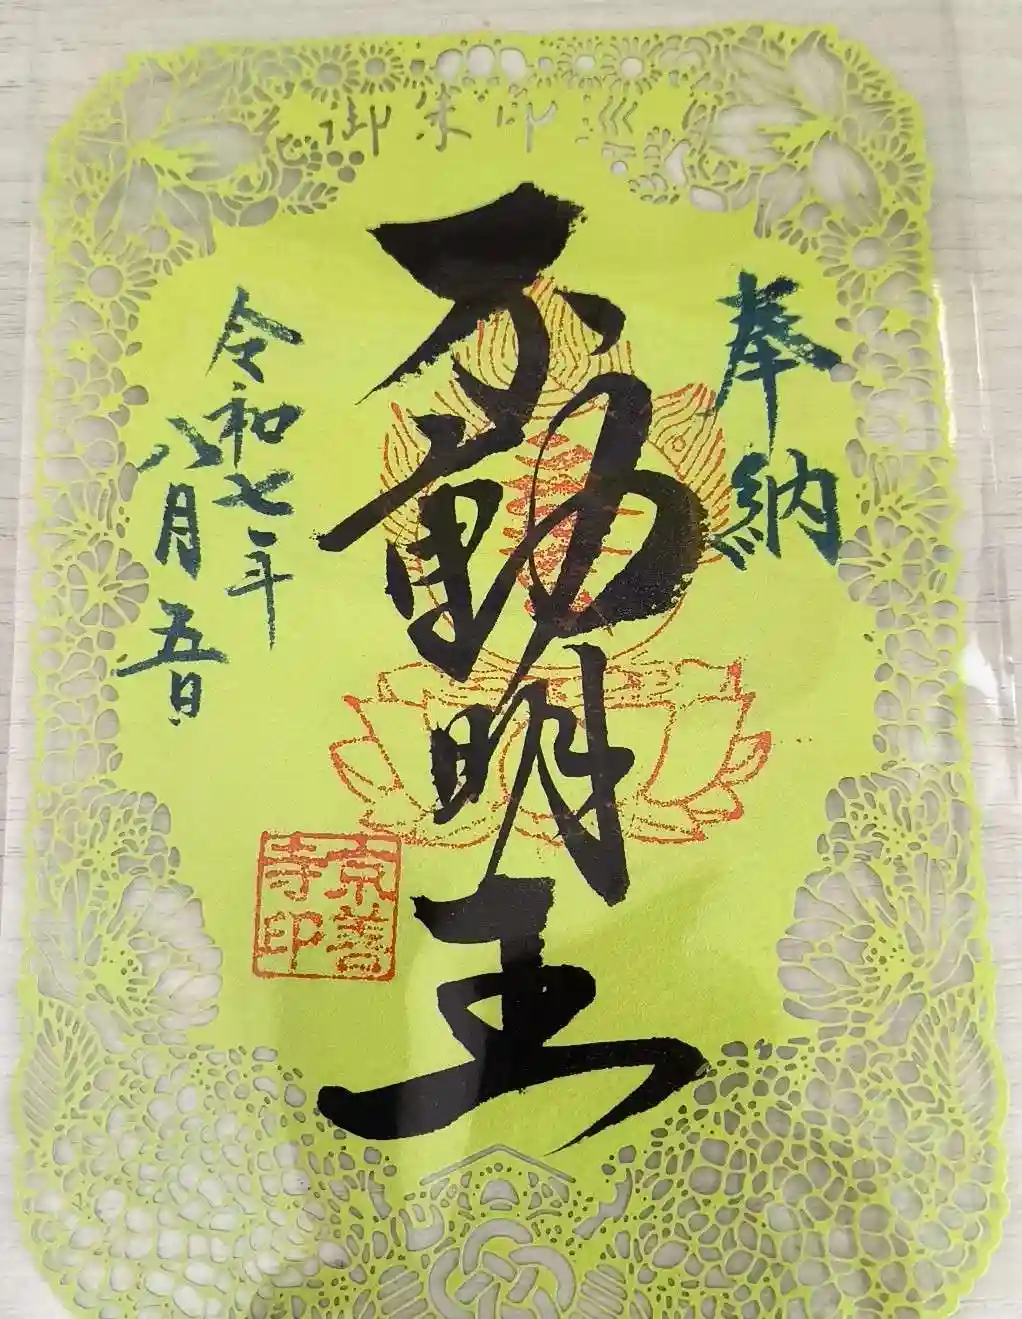 御朱印
奉納
不動明王
令和七年
八月五日
京善
寺印